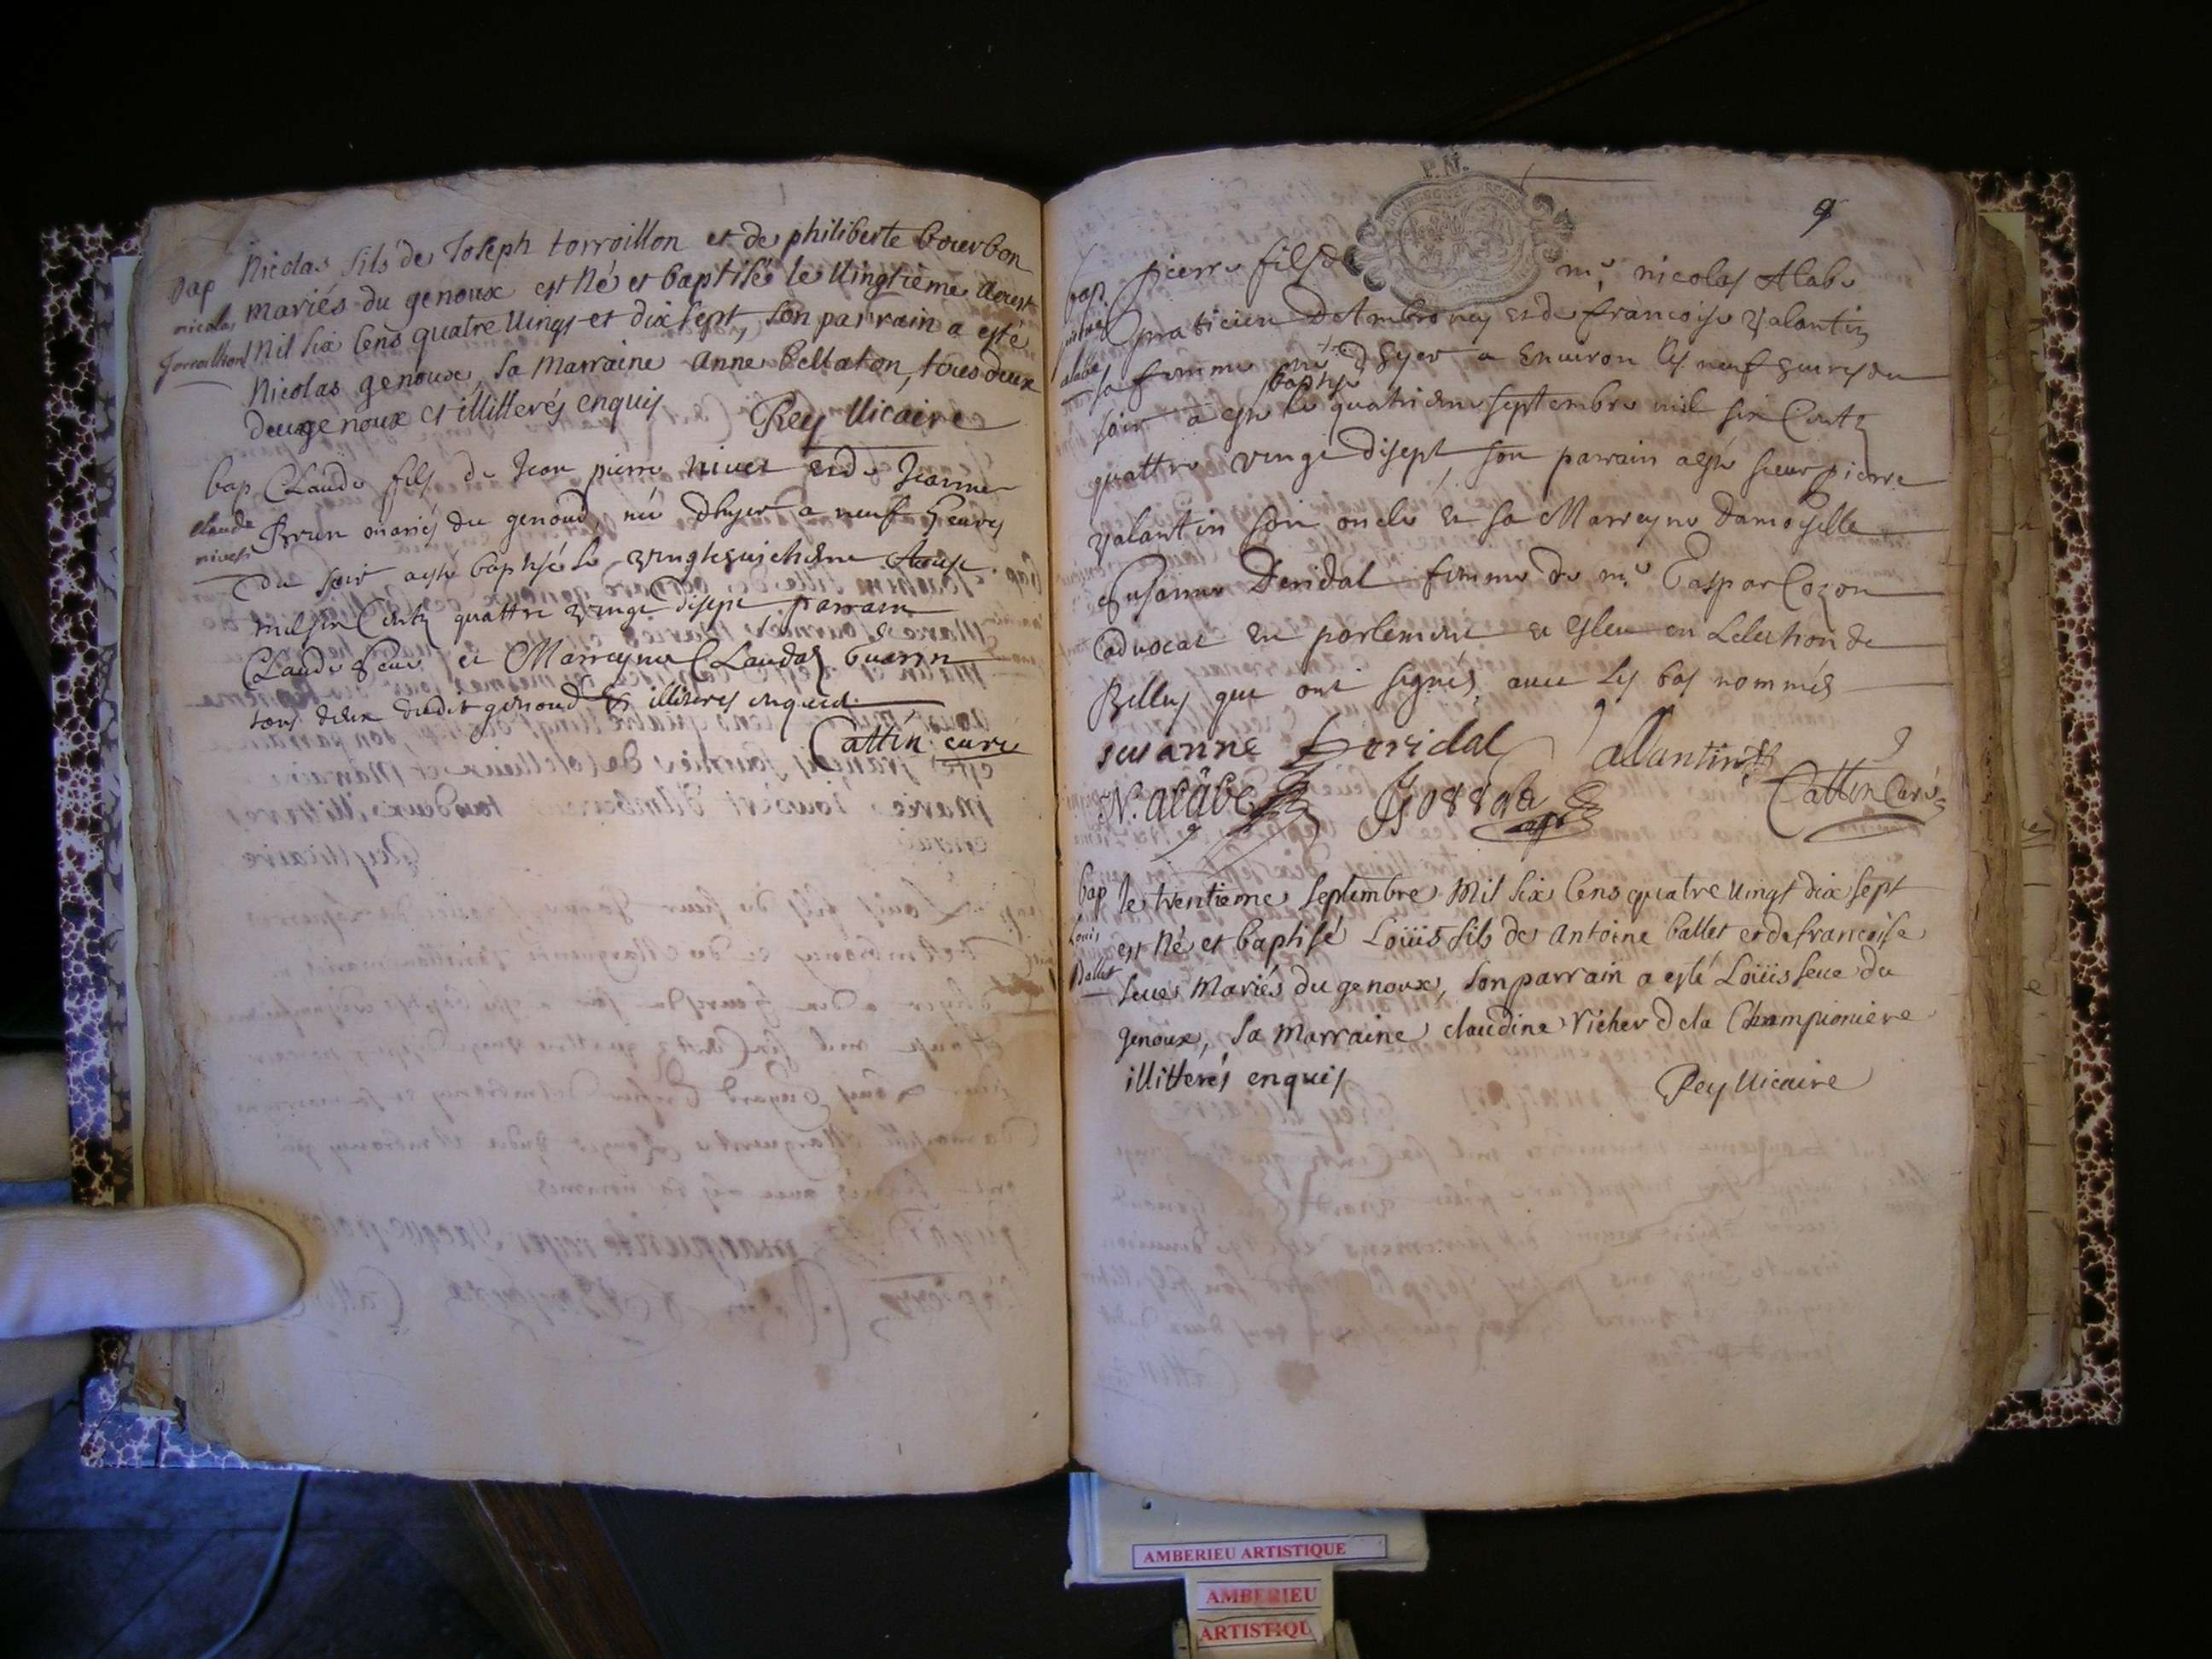 bap
nicolas
Torraillion
Nicolas fils de Joseph torroillon et de philiberte bourbon
mariés du genoux est Né et baptisé le Vingtieme Aoust
Mil six Cens quatre Vings et dix sept, son parrain a esté
Nicolas genoux, sa Marraine Anne bellaton, tous deux
deux genoux et illitterés enquis
Rey Vicaire
bap
claude
nivet
Claude fils de Jean pierre nivet et de Jeanne
Brun mariés du genoud, né dhyer a neuf heures
du soir a esté baptisé le vingthuictiême Aoust
mil six Centz quattre vingt disept parrain
Claude Seue et Marreyne Claudaz Guarin
tous deux dudit genoud & illiterés enquis
Cattin curé
9
P. N.
bap.
pierre
alabe
pierre fils de me nicolas Alabe
praticien D'Ambronay et de francoise valantin
sa femme né dhyer a environ les neuf heures du
soir a esté baptisé le quatrieme septembre mil six Centz
quattre vingt disept, son parrain a esté sieur pierre
valantin son oncle & sa Marreyne damoyselle
Susanne Dervidal femme de me Gaspar Cozon
advocat en parlement & esleu en Lelection de
Belley qui ont signés avec les bas nommés
susanne Dervidal
allantin
N. alabe
Cattin Curé
bap
Louis
Ballet
le trentieme septembre Mil six Cens quatre vingt dix sept
est Né et baptisé Loüis fils de Antoine ballet et de francoise
seue Mariés du genoux, son parrain a esté Loüis seue du
genoux, sa Marraine claudine Vicher de la Championiere
illitterés enquis
Rey Vicaire
AMBERIEU ARTISTIQUE
AMBERIEU
ARTISTIQU